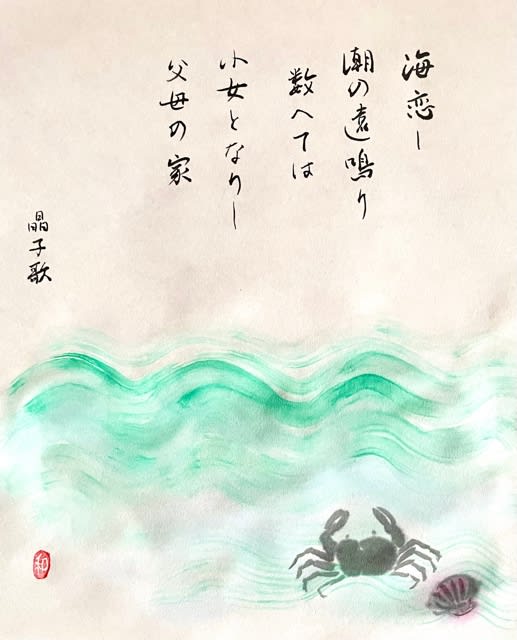 海恋し
潮の遠鳴り
数へては
少女となりし
父母の家
晶子歌